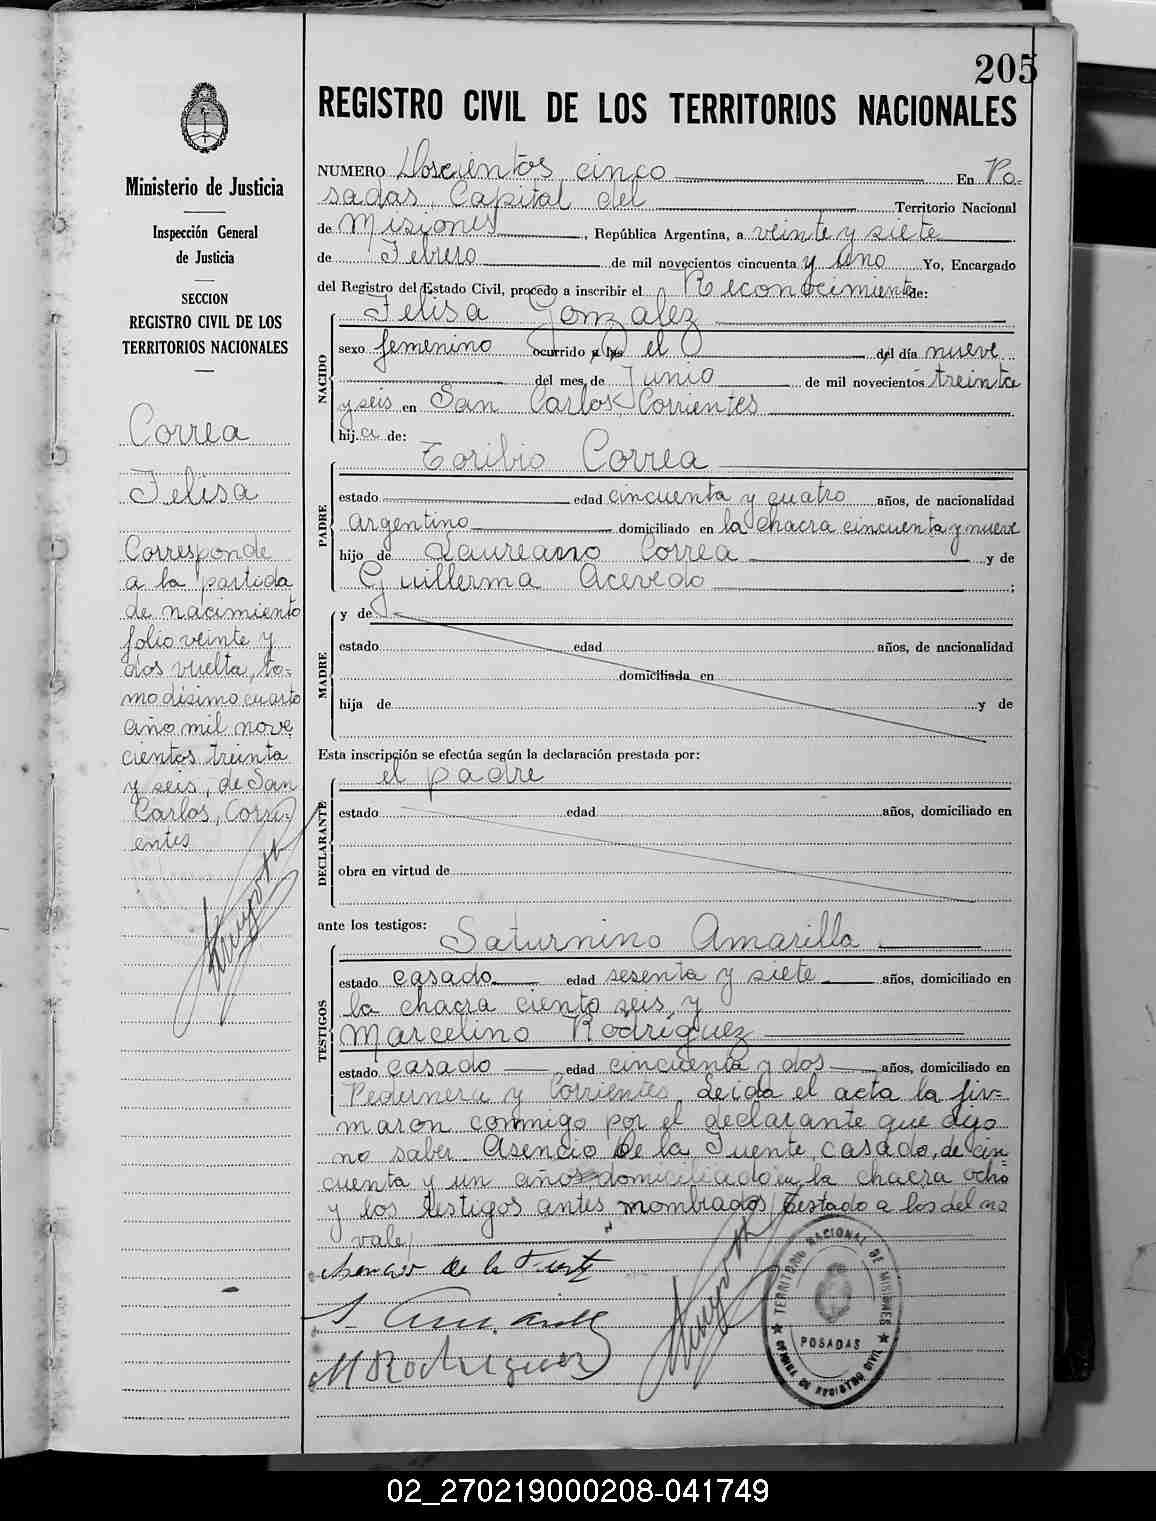 205
REGISTRO CIVIL DE LOS TERRITORIOS NACIONALES
Ministerio de Justicia
Inspección General
de Justicia
SECCION
REGISTRO CIVIL DE LOS
TERRITORIOS NACIONALES
Correa
Felisa
Corresponde
a la partida
de nacimiento
folio veinte y
dos vuelta, to=
mo décimo cuarto
año mil nove
cientos treinta
y seis, de San
Carlos, Corri-
entes
NUMERO Doscientos cinco En Po-
sadas, Capital del Territorio Nacional
de Misiones, República Argentina, a veinte y siete
de Febrero de mil novecientos cincuenta y uno Yo, Encargado
del Registro del Estado Civil, procedo a inscribir el Reconocimiento de:
NACIDO
Felisa Gonzalez
sexo femenino ocurrido a las el del día nueve
del mes de Junio de mil novecientos treinta
y seis en San Carlos Corrientes
hija de:
PADRE
Toribio Correa
estado edad cincuenta y cuatro años, de nacionalidad
argentino domiciliado en la chacra cincuenta y nueve
hijo de Laureano Correa y de
Guillerma Acevedo;
MADRE
y de
estado edad años, de nacionalidad
domiciliada en
hija de y de
Esta inscripción se efectúa según la declaración prestada por:
DECLARANTE
el padre
estado edad años, domiciliado en
obra en virtud de
ante los testigos:
TESTIGOS
Saturnino Amarilla
estado casado edad sesenta y siete años, domiciliado en
la chacra ciento seis, y
Marcelino Rodríguez
estado casado edad cincuenta y dos años, domiciliado en
Pedernera y Corrientes. Leida el acta la fir=
maron conmigo por el declarante que dijo
no saber Asencio de la Fuente, casado, de cin
cuenta y un años domiciliado en la chacra ocho
y los testigos antes nombrados/ Testado a los del no
vale/
Asencio de la Fuente
S. Amarilla
M Rodriguez
TERRITORIO NACIONAL DE MISIONES
POSADAS
OFICINA DE REGISTRO CIVIL
02_270219000208-041749